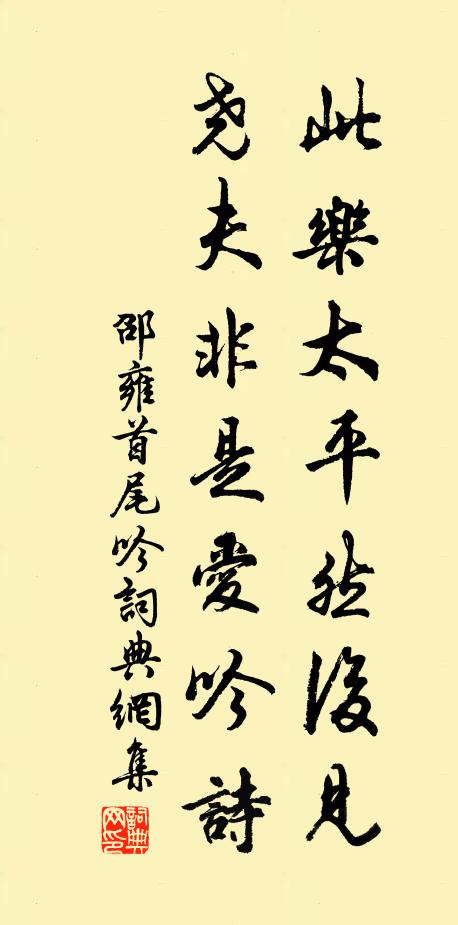 此樂太平然後見
堯夫非是愛吟詩
邵雍首尾吟詞典網集
詞典網印